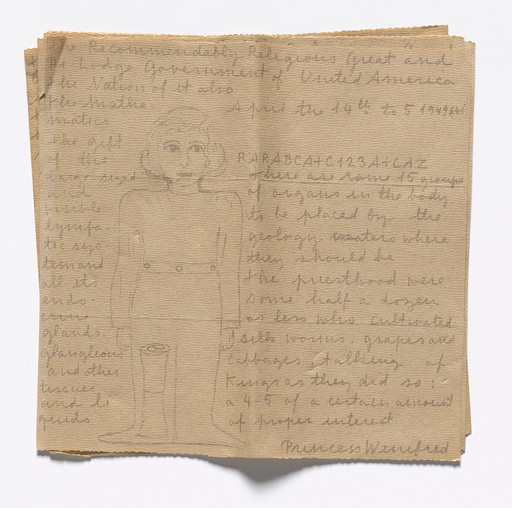 Recommendably Religious Great and
Lodge Government of United America
the Nation of it also
the Mathe
matics
the gift
of the
large sized
and
visible
lympha-
tic sys-
tem and
all its
endo-
crine
glands.
glanglions
and other
tissues
and li
quids
April the 14th to 5 1949
RARABCA+C123A+CAZ
there are some 15 groups
of organs in the body
to be placed by the
geology where
they should be
the priesthood were
some half a dozen
or less who cultivated
silk worms, grapes and
cabbages talking of
Kings as they did so:
a 4-5 of a certain amount
of proper interest
Princess Winifred